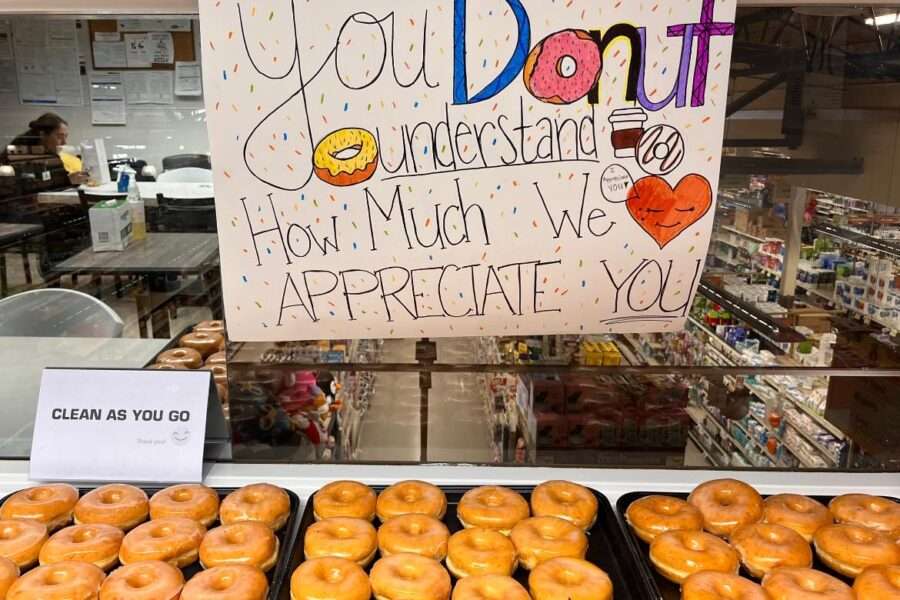 You Donut
understand
How Much We
I
Appreciate
YOU
APPRECIATE YOU
CLEAN AS YOU GO
Thank you!